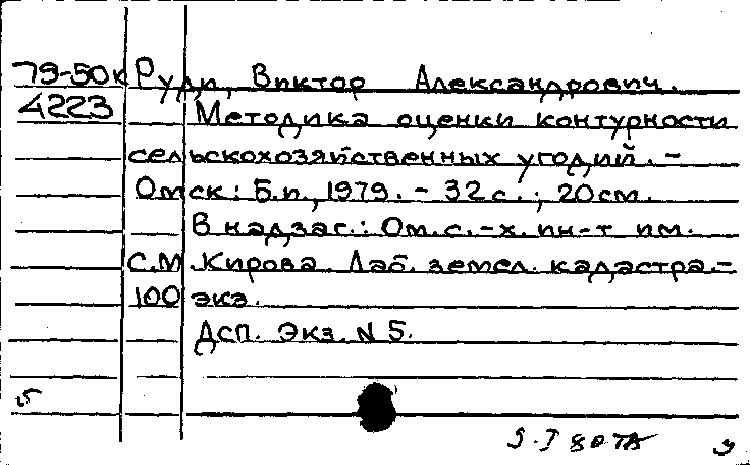 79-50к Руди, Виктор Александрович.
4223 Методика оценки контурности
сельскохозяйственных угодий. –
Омск: Б.и., 1979. – 32 с.; 20 см.
В надзаг.: Ом. с.-х. ин-т им.
С.М. Кирова. Лаб. земел. кадастра. –
100 экз.
Дсп. Экз. N 5.